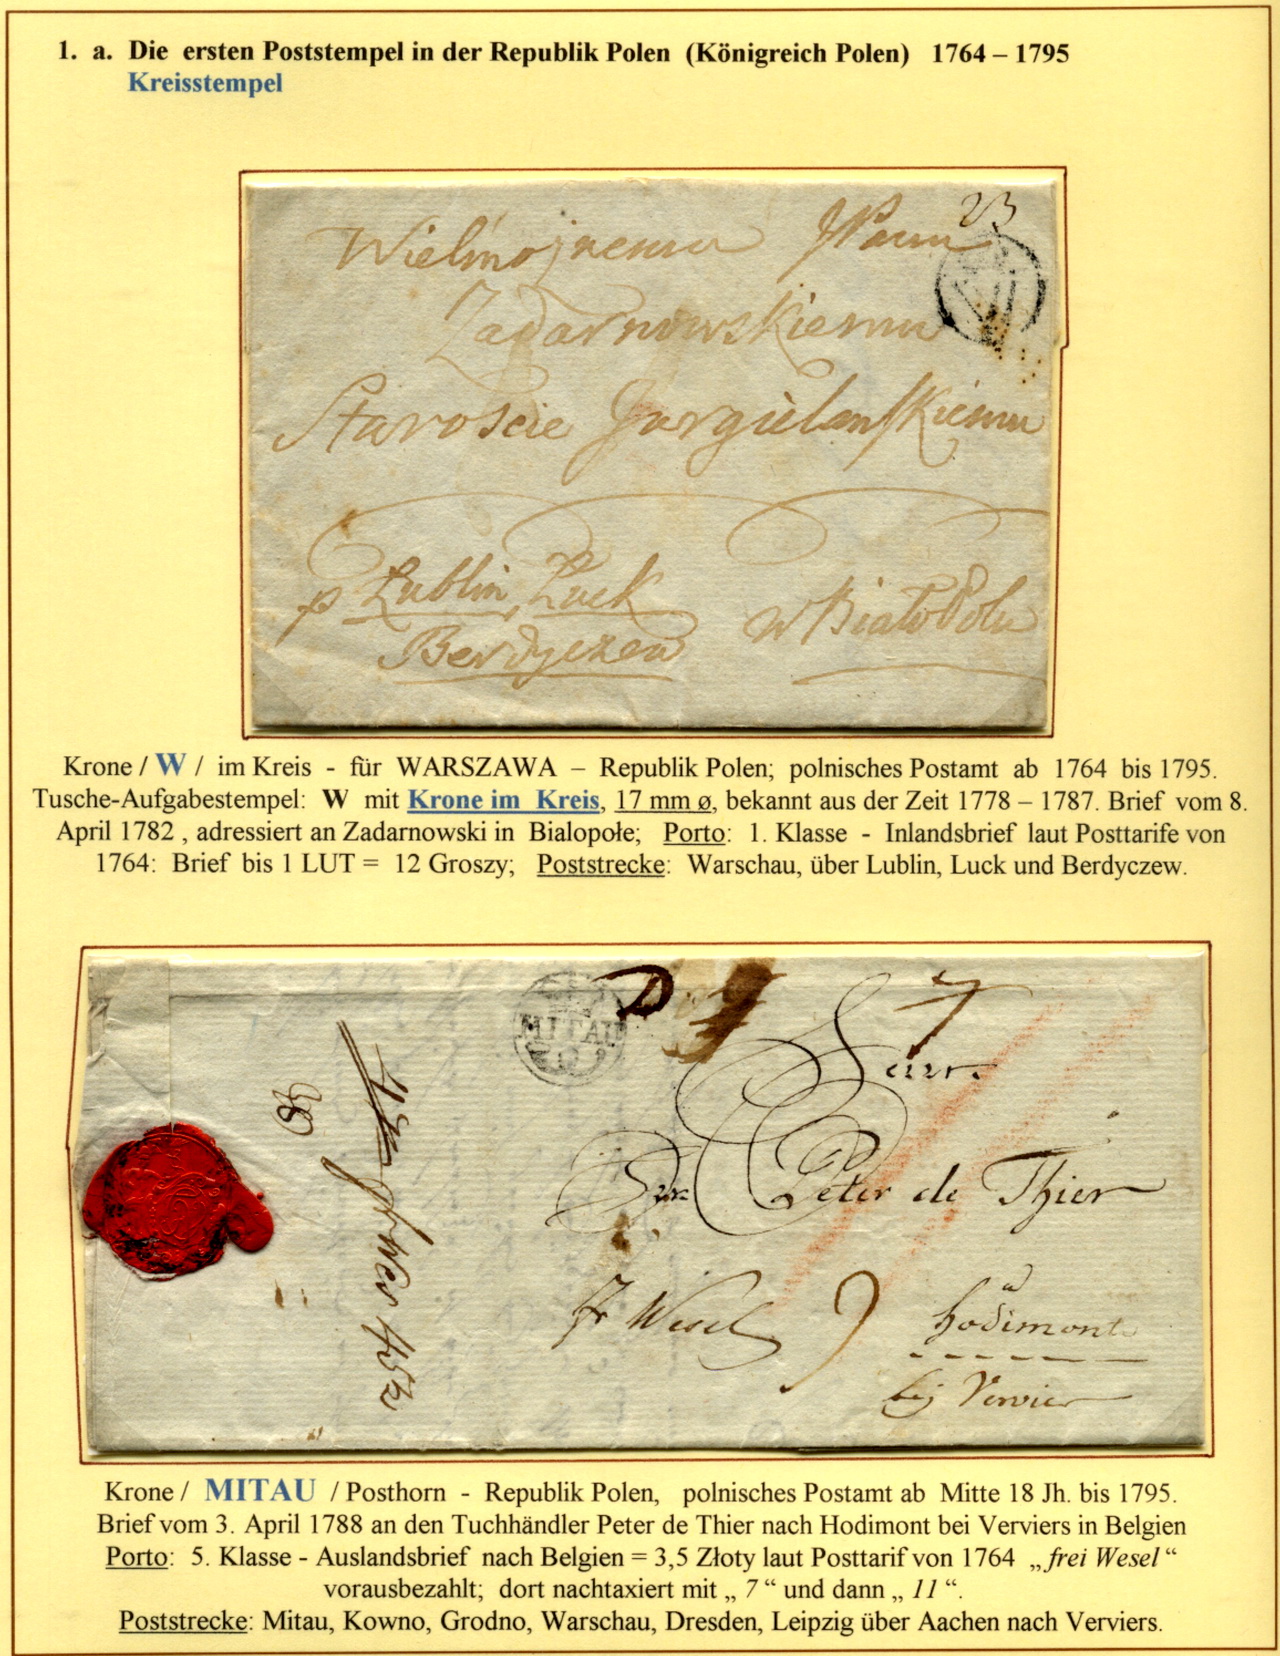 1. a. Die ersten Poststempel in der Republik Polen (Königreich Polen) 1764 – 1795
Kreisstempel
23
Wielmożnemu JPanu
Zadarnowskiemu
Staroscie
p Lublin, Łuck
Berdyczew
w Białopolu
Krone / W / im Kreis - für WARSZAWA – Republik Polen; polnisches Postamt ab 1764 bis 1795.
Tusche-Aufgabestempel: W mit Krone im Kreis, 17 mm ø, bekannt aus der Zeit 1778 – 1787. Brief vom 8.
April 1782 , adressiert an Zadarnowski in Bialopołe; Porto: 1. Klasse - Inlandsbrief laut Posttarife von
1764: Brief bis 1 LUT = 12 Groszy; Poststrecke: Warschau, über Lublin, Luck und Berdyczew.
MITAU
7
Peter de Thier
fr Wesel
a
hodimont
bij Vervier
Krone / MITAU / Posthorn - Republik Polen, polnisches Postamt ab Mitte 18 Jh. bis 1795.
Brief vom 3. April 1788 an den Tuchhändler Peter de Thier nach Hodimont bei Verviers in Belgien
Porto: 5. Klasse - Auslandsbrief nach Belgien = 3,5 Złoty laut Posttarif von 1764 „frei Wesel“
vorausbezahlt; dort nachtaxiert mit „ 7 “ und dann „ 11 “.
Poststrecke: Mitau, Kowno, Grodno, Warschau, Dresden, Leipzig über Aachen nach Verviers.